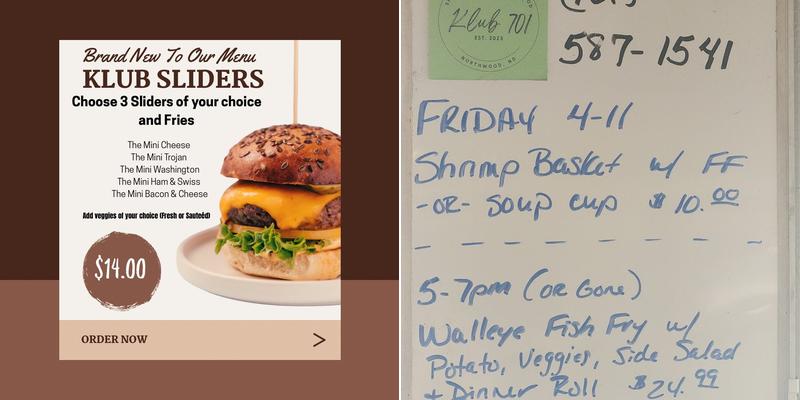 Brand New To Our Menu
KLUB SLIDERS
Choose 3 Sliders of your choice
and Fries
The Mini Cheese
The Mini Trojan
The Mini Washington
The Mini Ham & Swiss
The Mini Bacon & Cheese
Add veggies of your choice (Fresh or Sauteéd)
$14.00
ORDER NOW
Klub 701
EST. 2023
NORTHWOOD, ND
587-1541
FRIDAY 4-11
Shrimp Basket w/ FF
-OR- Soup cup $10.00
5-7pm (OR Gone)
Walleye Fish Fry w/
Potato, Veggies, Side Salad
+ Dinner Roll $24.99